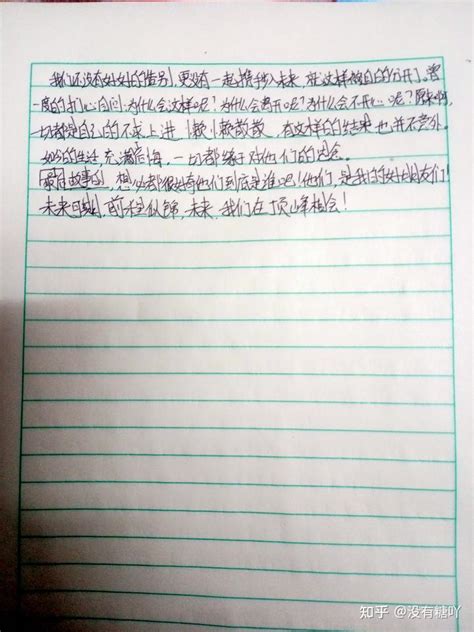 我们还没有好好的告别,更没有一起携手入未来,就这样各自的分开了。曾
一度的扪心自问,为什么会这样呢?为什么会离开呢?为什么会不开心呢?原来啊,
一切都是自己的不求上进,懒懒散散,有这样的结果也并不意外。
如今的生活,充满后悔,一切都缘对他们的思念。
故事,想必都很好奇他们到底是谁吧!他们,是我的好朋友们!
未来可期,前程似锦,未来,我们在顶峰相会!
知乎 @没有糖吖